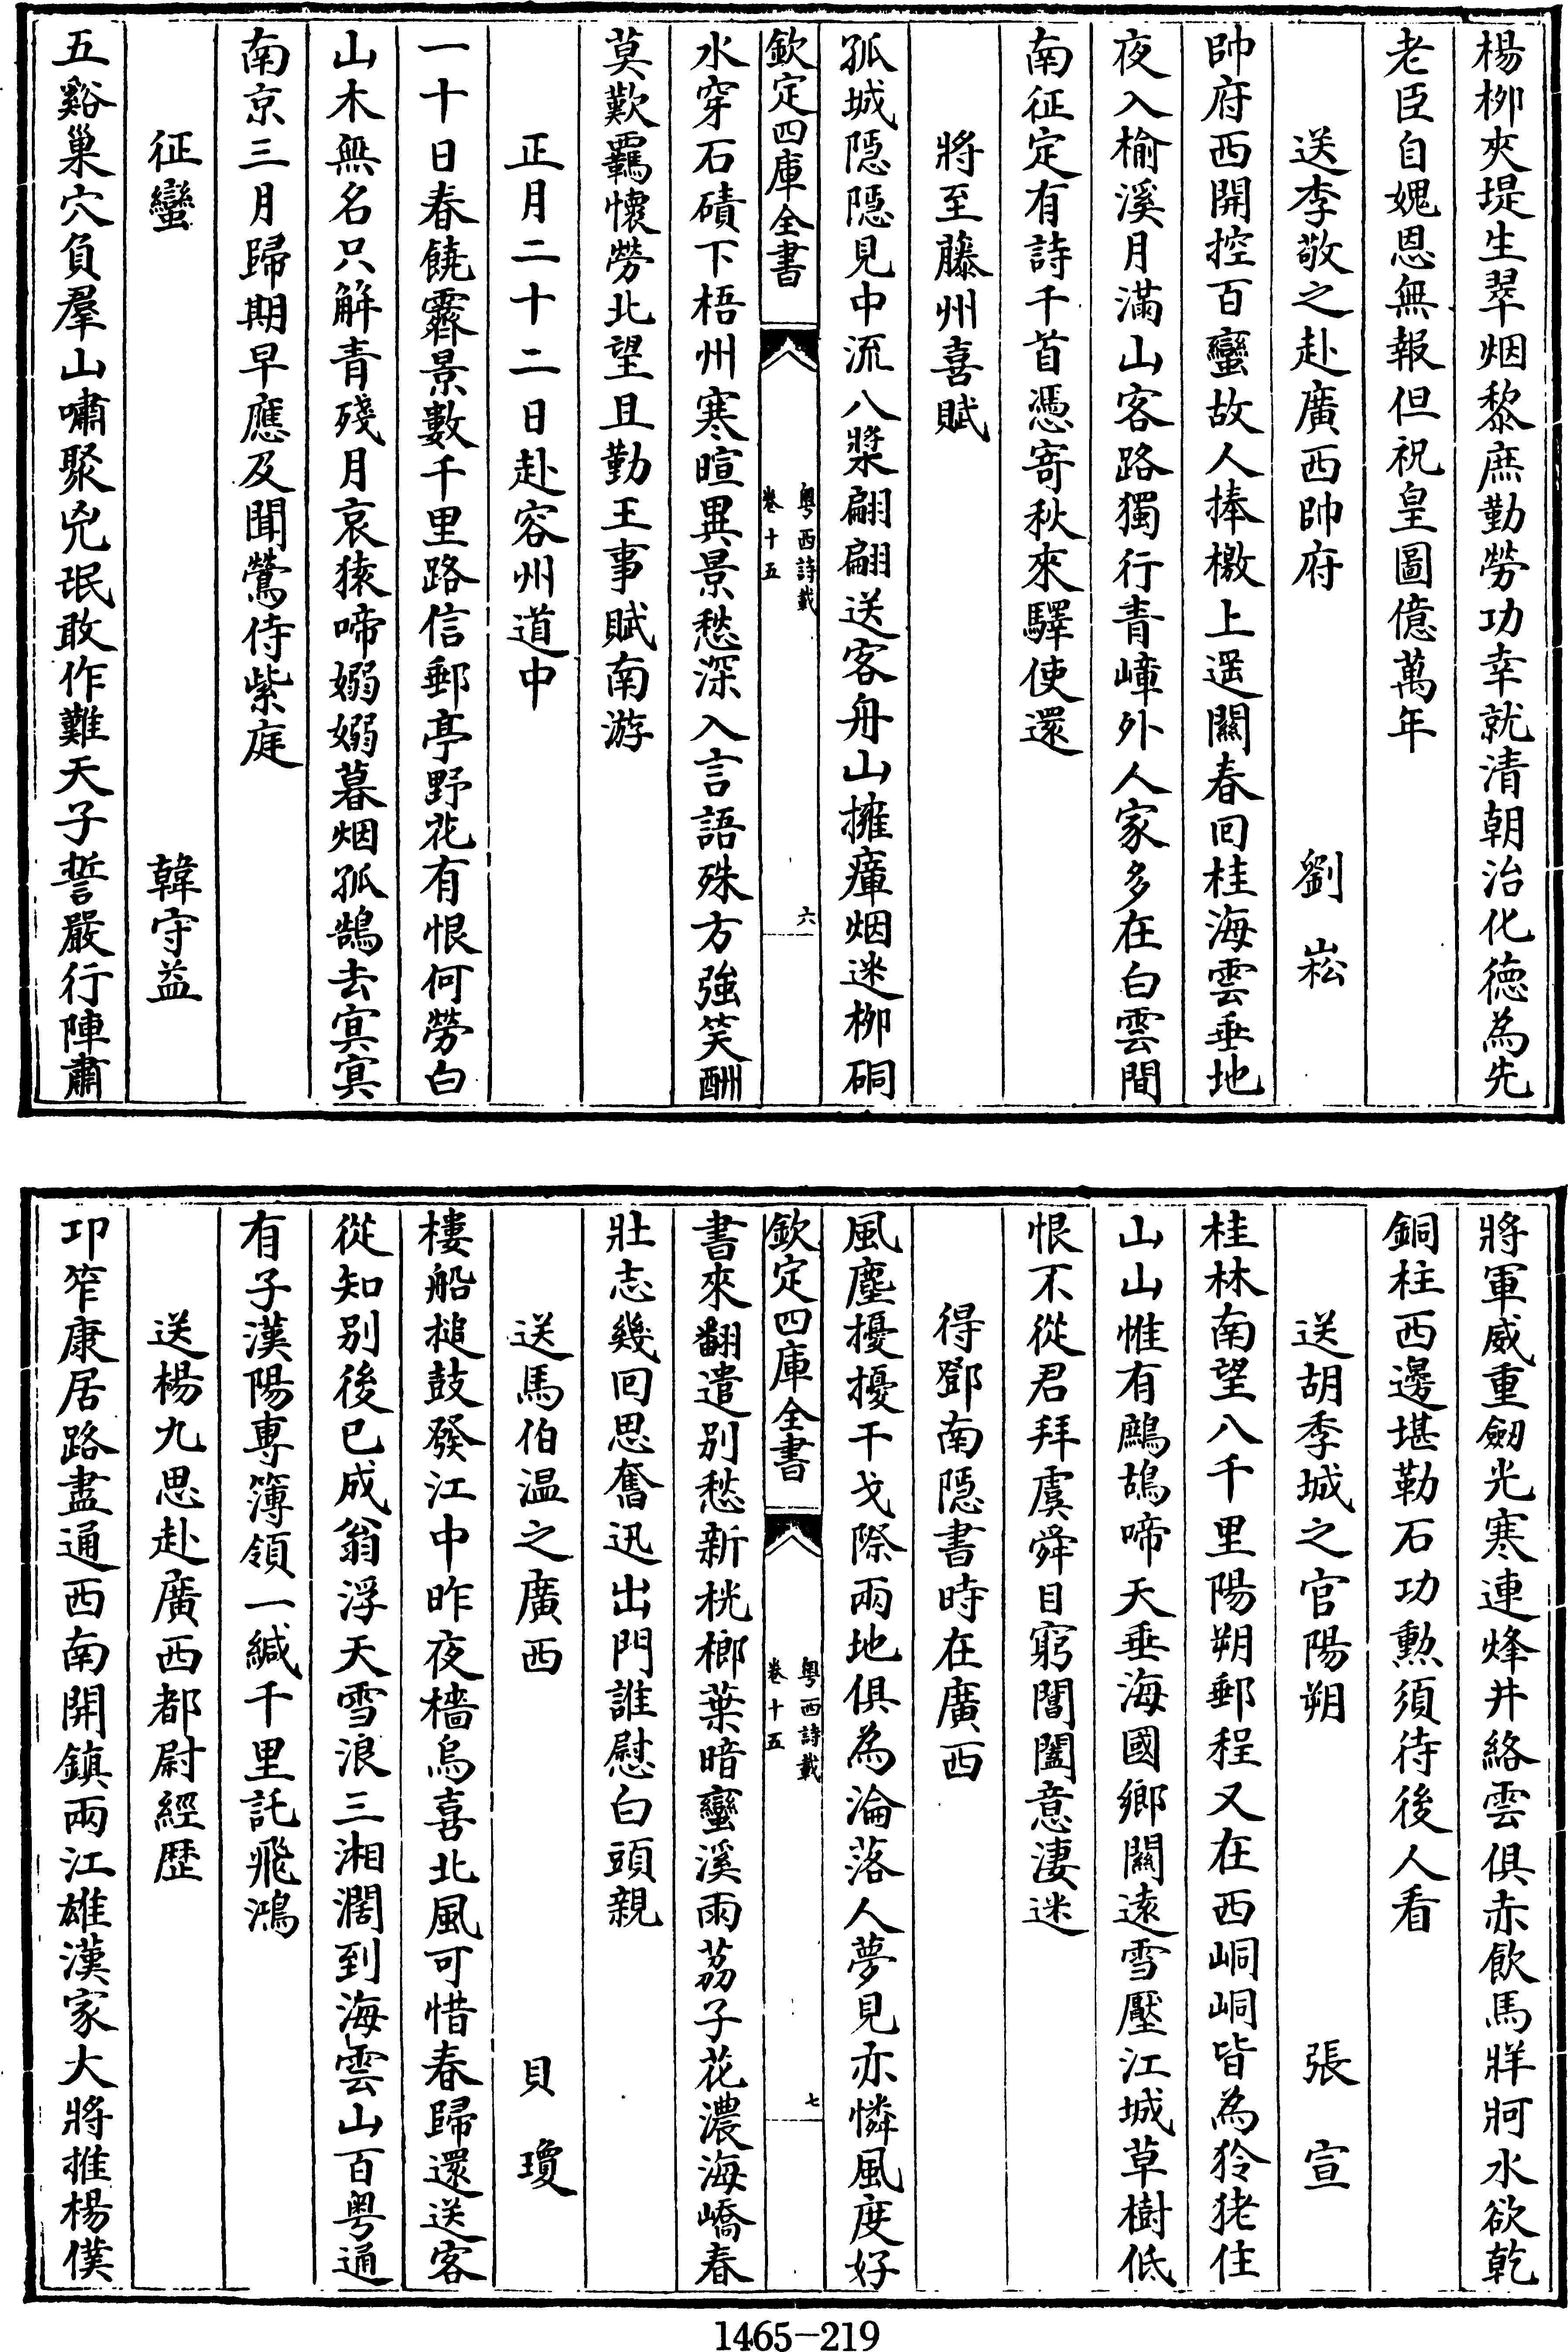 楊柳夾堤生翠烟黎庶勤勞功幸就清朝治化徳為先
老臣自媿恩無報但祝皇圖億萬年
送李敬之赴廣西帥府　劉崧
帥府西開控百蠻故人捧檄上遥闗春回桂海雲垂地
夜入榆溪月滿山客路獨行青嶂外人家多在白雲間
南征定有詩千首憑寄秋來驛使還
將至藤州喜賦
孤城隠隠見中流八槳翩翩送客舟山擁瘴烟迷柳硐
欽定四庫全書
粤西詩載
卷十五
六
水穿石磧下梧州寒暄異景愁深入言語殊方強笑酬
莫歎羈懷勞北望且勤王事賦南游
正月二十二日赴容州道中
一十日春饒霽景數千里路信郵亭野花有恨何勞白
山木無名只解青殘月哀猿啼嫋嫋暮烟孤鵠去寞寞
南京三月歸期早應及聞鶯侍紫庭
征蠻　韓守益
五谿巢穴負羣山嘯聚兇氓敢作難天子誓嚴行陣肅
將軍威重劒光寒連烽井絡雲俱赤飲馬牂牁水欲乾
銅柱西邊堪勒石功勲須待後人看
送胡季城之官陽朔　張宣
桂林南望八千里陽朔郵程又在西峒峒皆為狑狫住
山山惟有鷓鴣啼天垂海國鄉闗遠雪壓江城草樹低
恨不從君拜虞舜目窮閶闔意淒迷
得鄧南隠書時在廣西
風塵擾擾干戈際兩地俱為淪落人夢見亦憐風度好
欽定四庫全書
粤西詩載
卷十五
七
書來翻遣别愁新桄榔葉暗蠻溪雨茘子花濃海嶠春
壯志幾回思奮迅出門誰慰白頭親
送馬伯温之廣西　貝瓊
樓船搥鼓發江中昨夜檣烏喜北風可惜春歸還送客
從知别後已成翁浮天雪浪三湘濶到海雲山百粤通
有子漢陽專簿領一緘千里託飛鴻
送楊九思赴廣西都尉經歴
邛笮康居路盡通西南開鎮兩江雄漢家大將推楊僕
1465-219